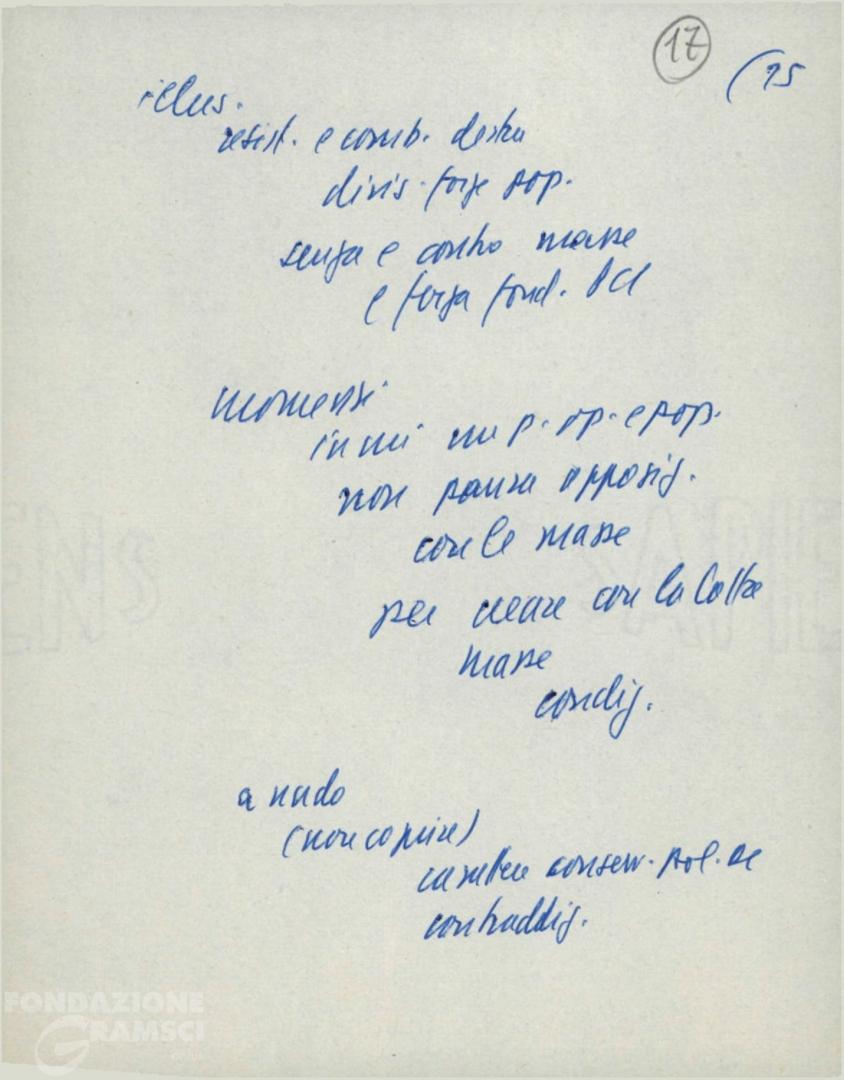 17
(15
illus.
resist. e comb. destra
divis. forze pop.
senza e contro masse
e forza fond. PCI
momenti
in cui p. op. e pop.
non paura opposiz.
con le masse
per creare con la lotta
masse
condiz.
a nudo
(non coprire)
carattere conserv. pol. DC
contraddiz.
FONDAZIONE
GRAMSCI